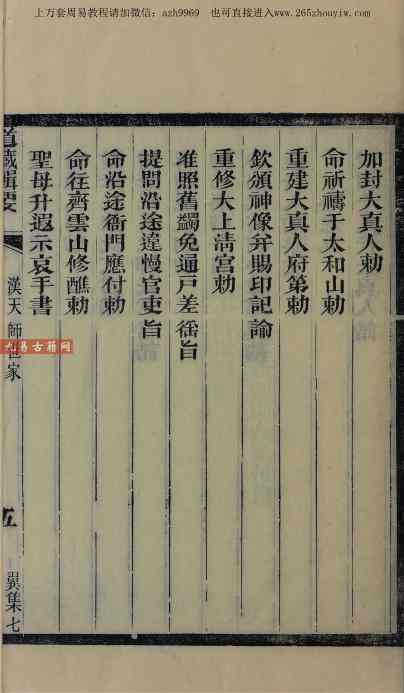 上万套周易教程请加微信：azh9969　也可直接进入www.265zhouyiw.com
加封大真人勅
命祈禱于太和山勅
重建大真人府第勅
欽頒神像并賜印記諭
重修大上清宮勅
准照舊蠲免通戶差徭旨
提問沿途違慢官吏旨
命沿途衙門應付勅
命往齊雲山修醮勅
聖母升遐示哀手書
道藏輯要
漢天師世家
五
翼集七
九易古籍网